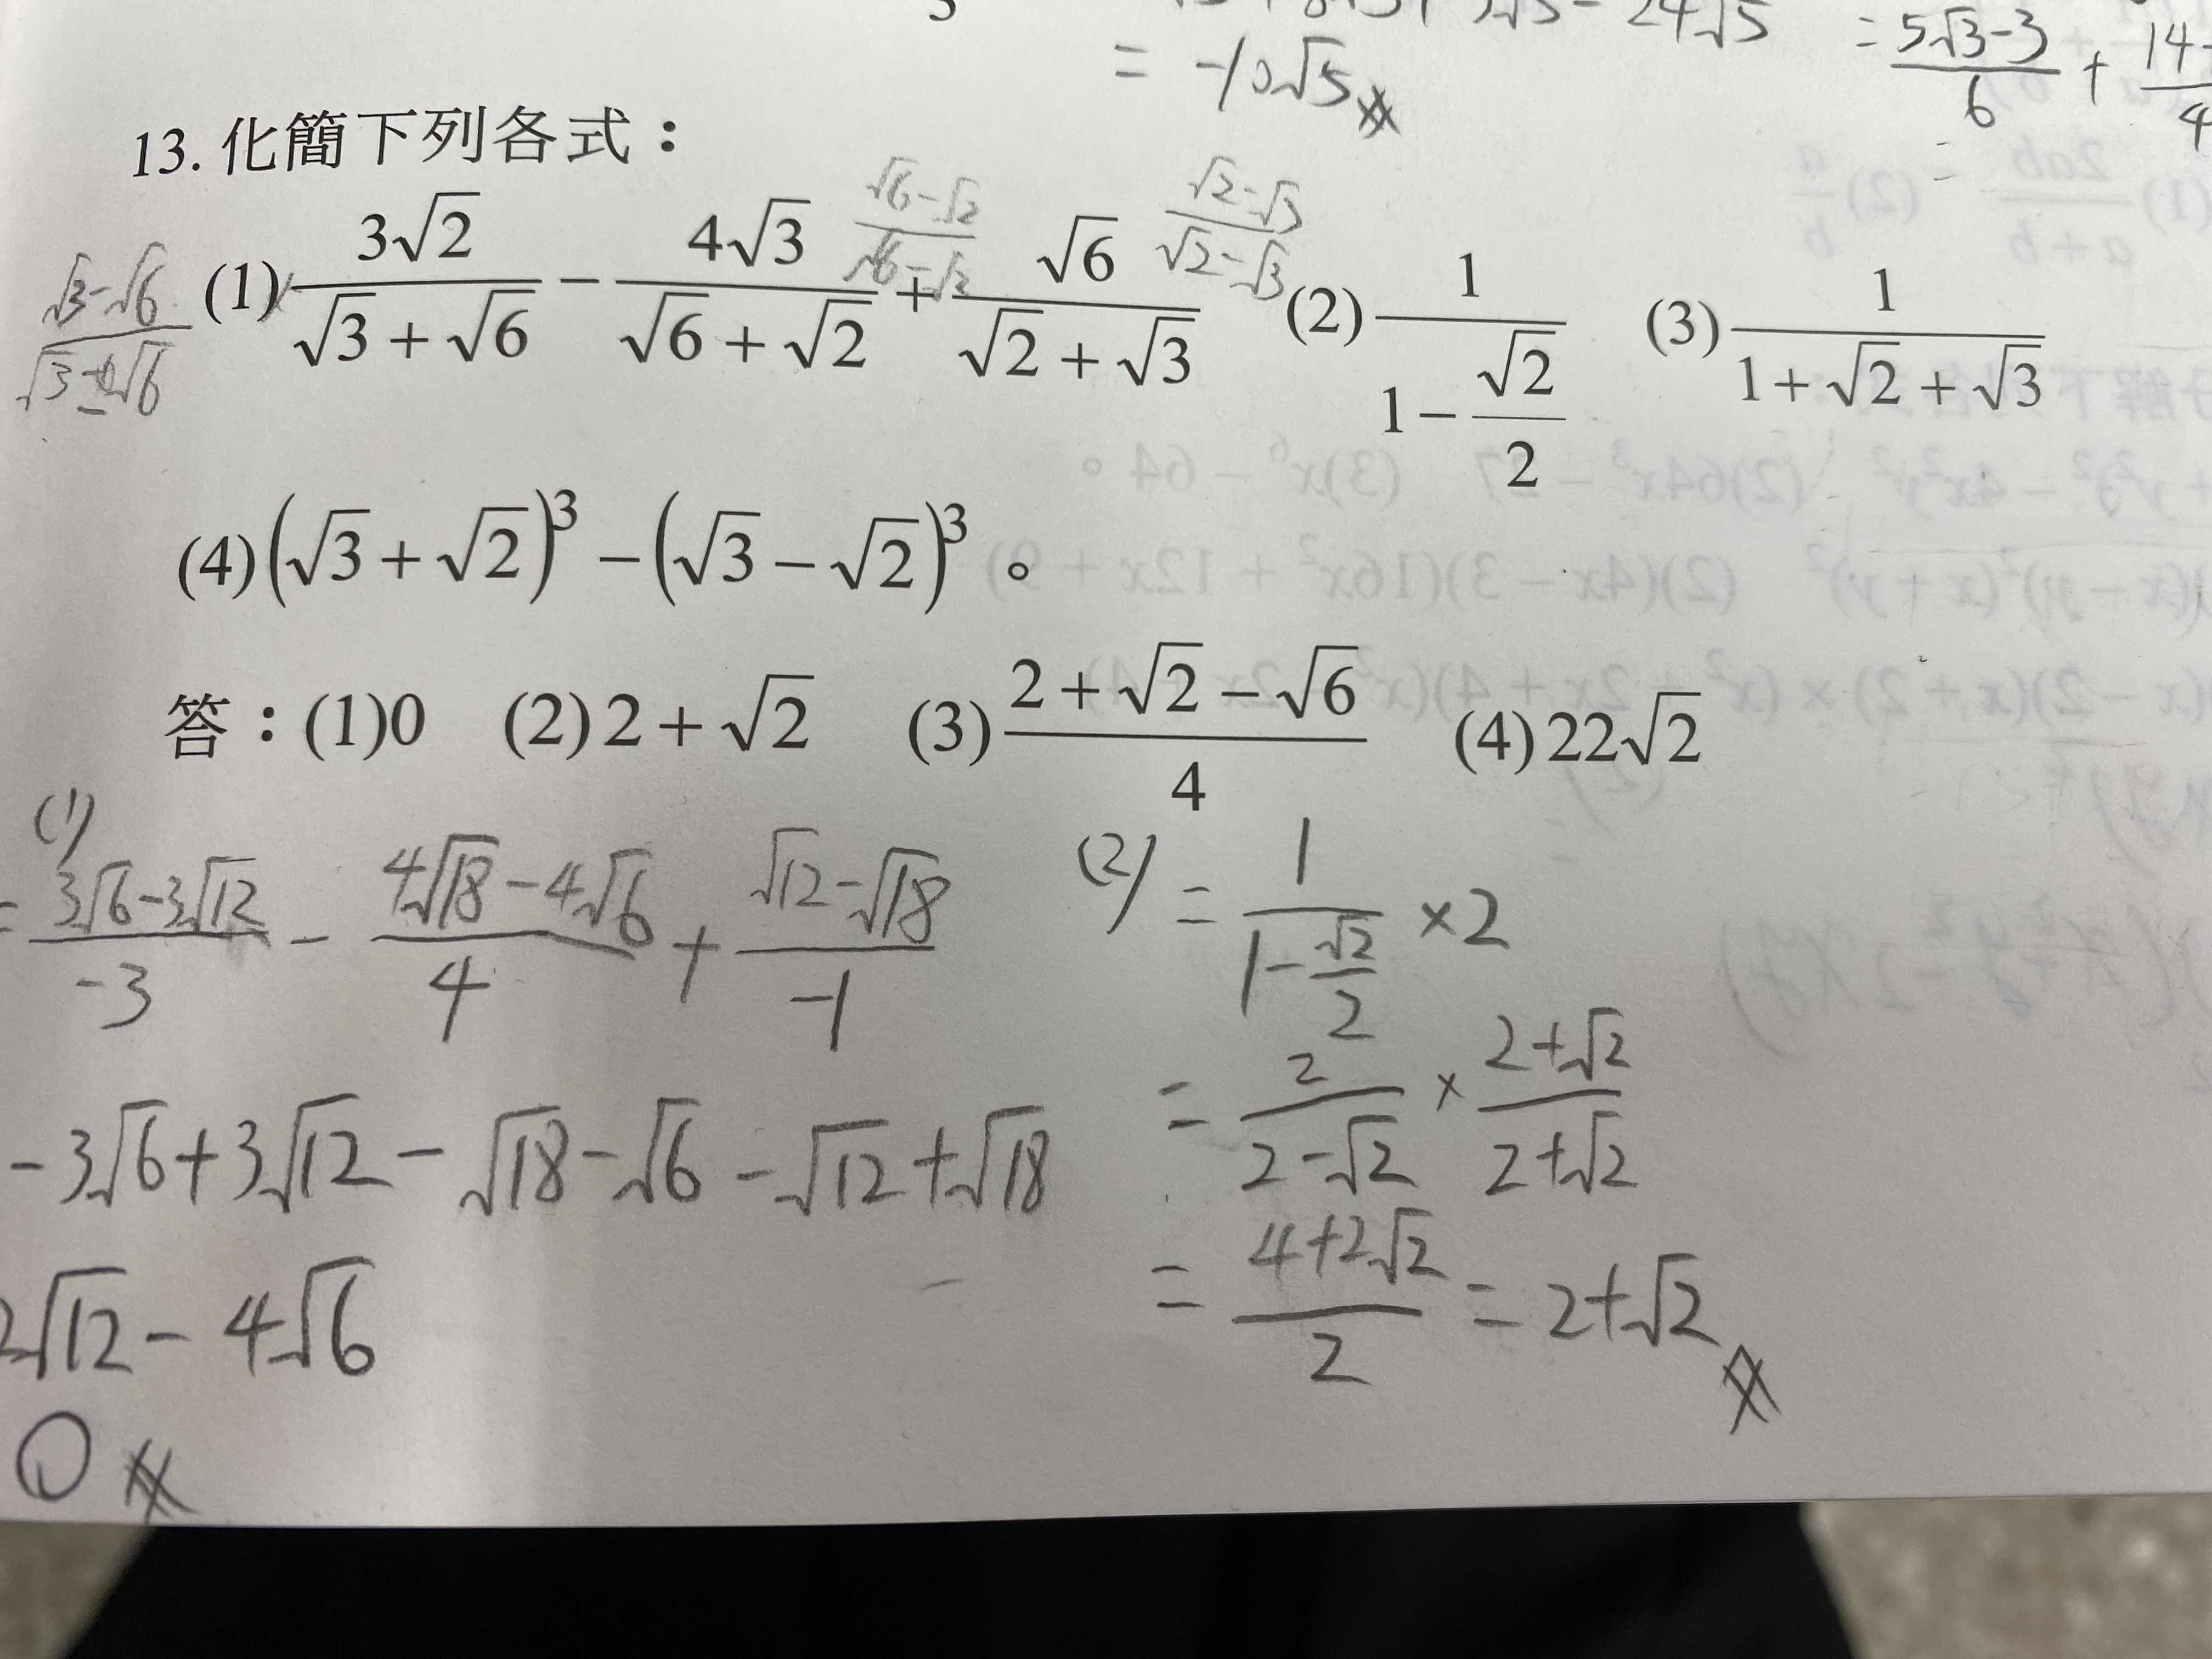 = -10√5
= (5√3-3)/6 +
13. 化簡下列各式：
(√3-√6)/(√3-√6)
(√6-√2)/(√6-√2)
(√2-√3)/(√2-√3)
(1) 3√2/(√3+√6) - 4√3/(√6+√2) + √6/(√2+√3) (2) 1/(1-√2/2) (3) 1/(1+√2+√3)
(4) (√3+√2)³ - (√3-√2)³。
答：(1)0 (2) 2+√2 (3) (2+√2-√6)/4 (4) 22√2
(1)
= (3√6-3√12)/-3 - (4√18-4√6)/4 + (√12-√18)/-1
-3√6+3√12-√18-√6-√12+√18
2√12-4√6
0
(2) = 1/(1-√2/2) ×2
= 2/(2-√2) × (2+√2)/(2+√2)
= (4+2√2)/2 = 2+√2